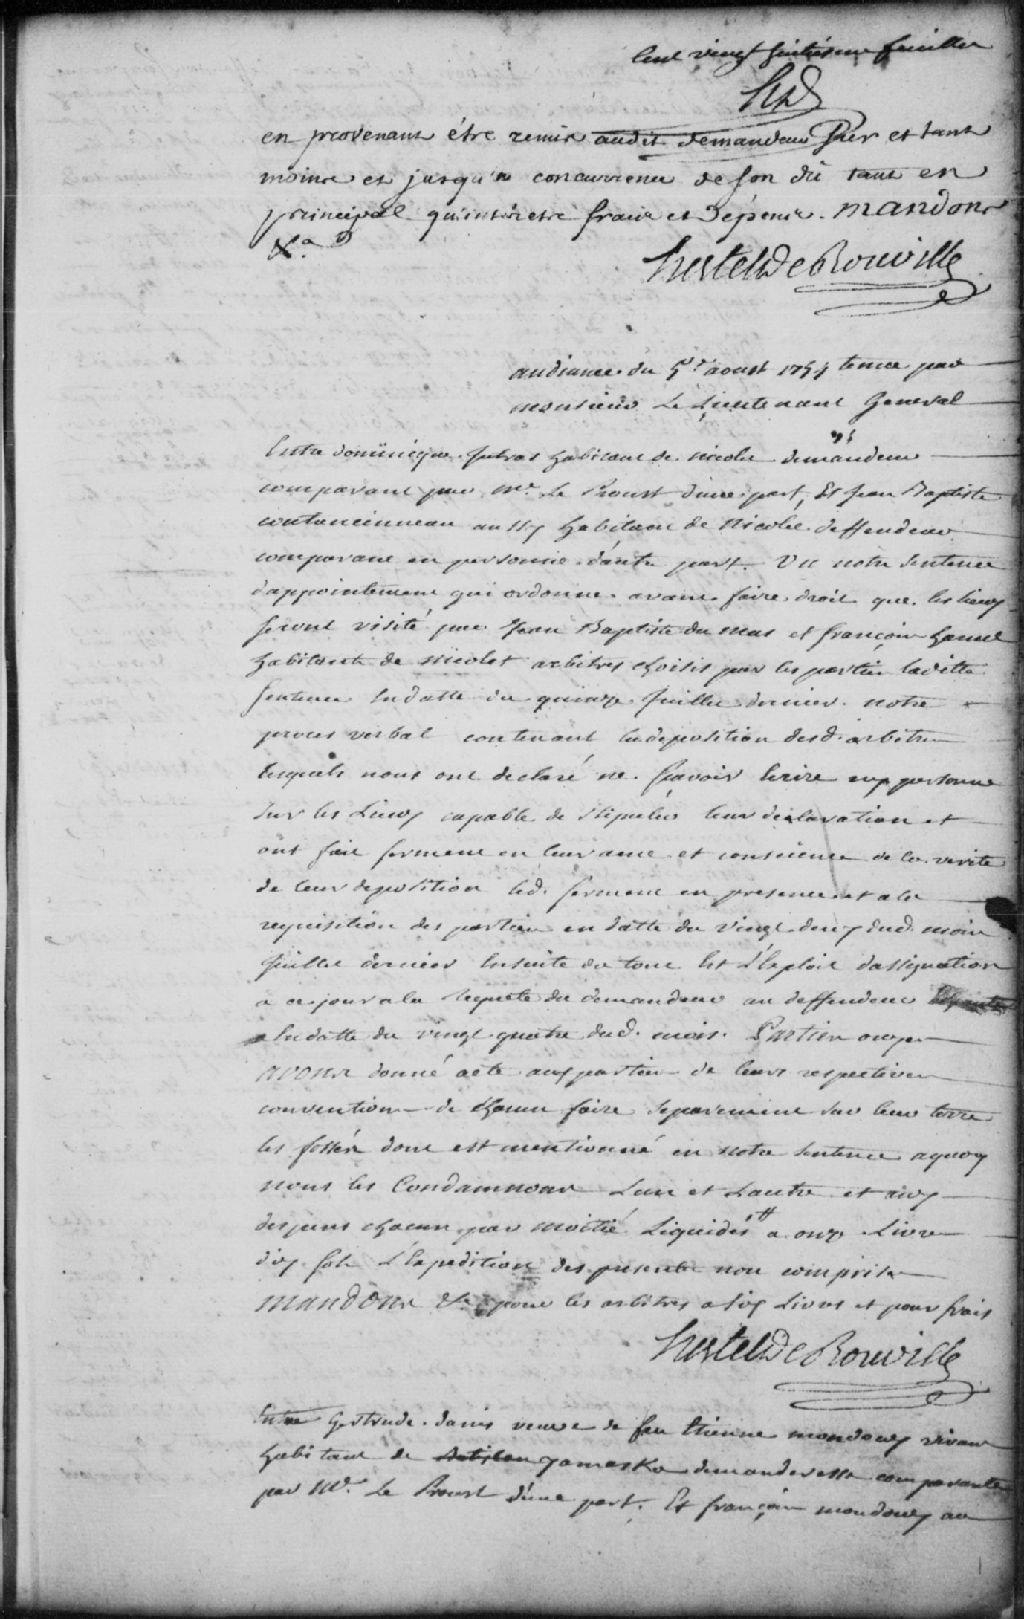 Cent vingt huitieme feuillet
HDR
en provenant être remis audit demandeur Pier et tant
moins et jusqu'a concurrence de son dû tant en
principal qu'interets fraix et Dépens. mandons
&a
hertel De Rouville
audiance du 5e aoust 1754 tenue par
monsieur Le Lieutenant General
Entre dominique Jutras habitant de nicolet demandeur
comparant par Mr. Le Proust d'une part, Et Jean Baptiste
coutancinneau aussy habitant de Nicolet deffendeur
comparant en personne d'autre part. Vu notre sentence
d'appointement qui ordonne avant faire droit que les lieux
seront visité par Jean Baptiste du mas et françois hamel
habitants de Nicolet arbitres choisis par les parties laditte
sentence En datte du quinze juillet dernier notre
proces verbal contenant la deposition desd. arbitres
Lesquels nous ont declaré ne sçavoir Ecrire ny personne
sur les Lieux capable de stipuler leur déclaration et
ont fait serment en leur ame et conscience de la verité
de leur deposition led. serment en presence et a la
requisition des parties en datte du vingt deux dud. mois
juillet dernier Ensuite du tout Est L'Exploit d'assignation
a ce jour a la Requete du demandeur au deffendeur
En datte du vingt quatre dud. mois. Parties ouyes
avons donné acte aux parties de leurs respectives
conventions de chacun faire separement sur leur terre
les fossés dont est mentionné en notre sentence aquoy
nous les Condamnons Lun et Lautre et aux
depens chacun par moitié Liquidés a onze Livres
dix sols L'Expedition des presentes non comprise
Mandons &a pour les arbitres a six Livres et pour frais
hertel De Rouville
Entre Gertrude danis veuve de feu Etienne mondoux vivant
habitant de yamaska demanderesse comparante
par Mr. Le Proust d'une part. Et françois mondoux au